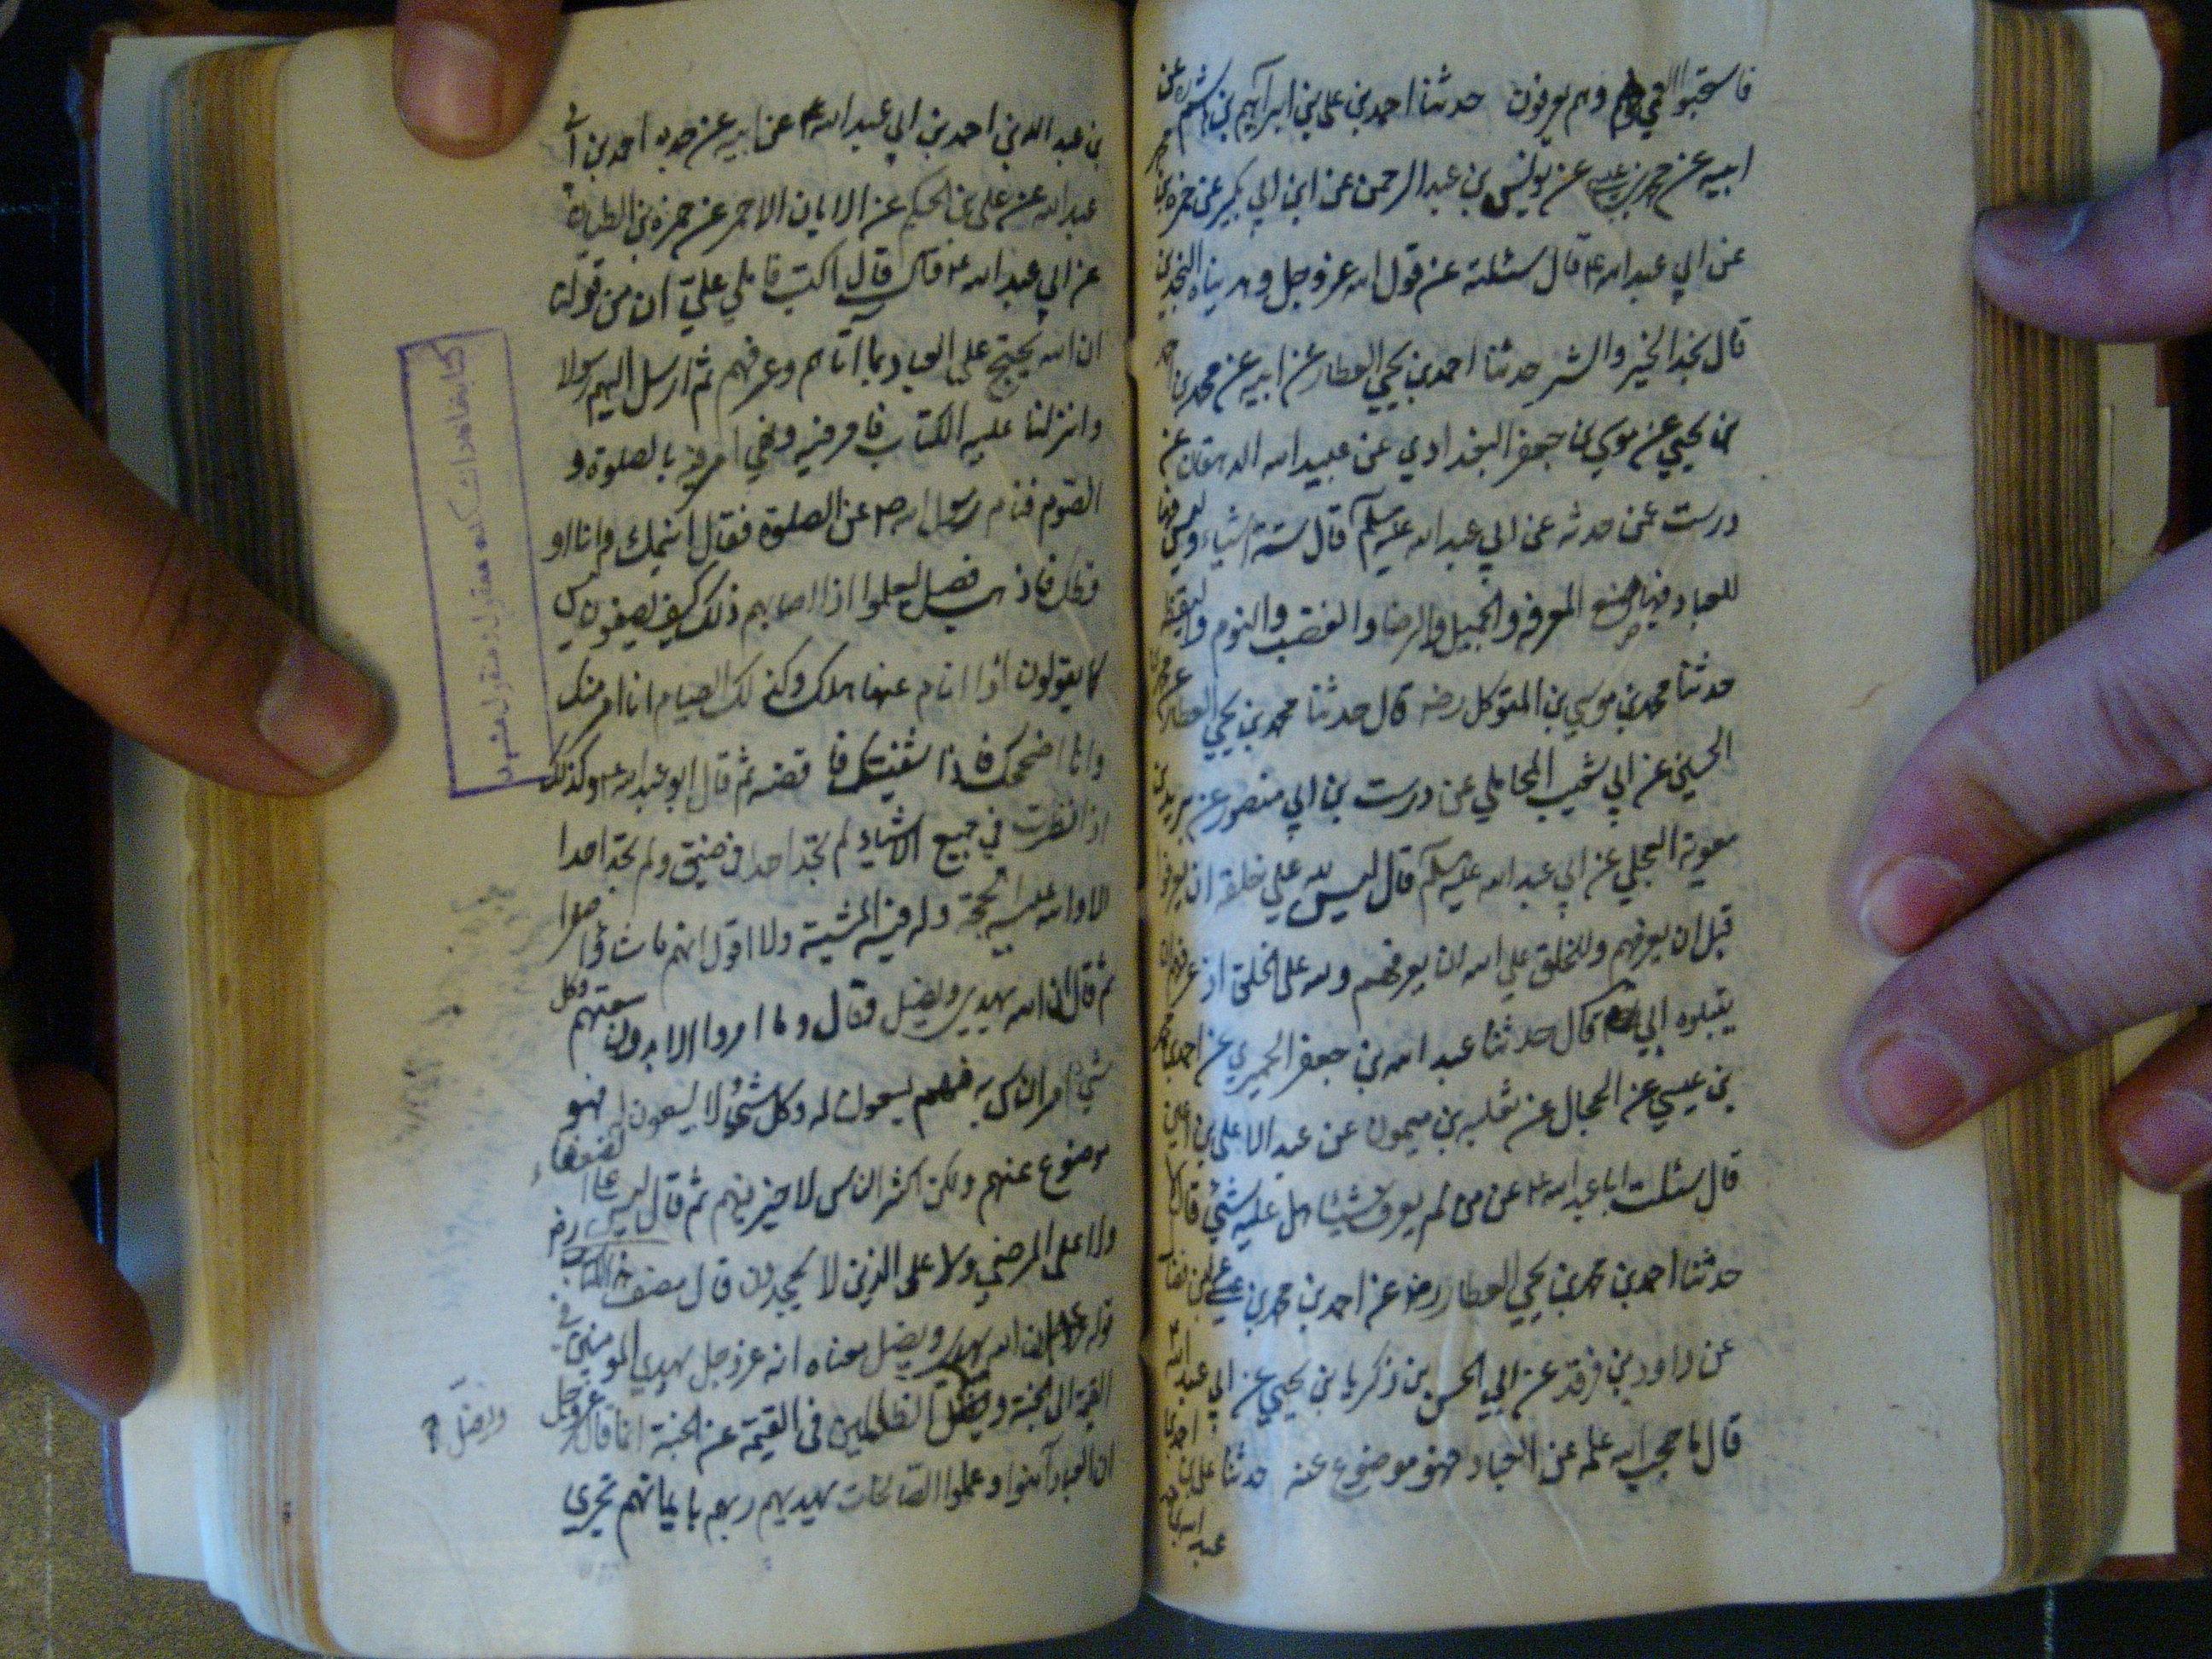 فاستحبوا العمي وهم يعرفون حدثنا احمد بن علي بن ابراهيم بن هاشم رض عن
ابيه عن محمد بن عيسى عن يونس بن عبد الرحمن عن ابن ابي بكير عن حمزة بن محمد
عن ابي عبد الله ع قال سئلته عن قول الله عز وجل وهديناه النجدين
قال نجد الخير والشر حدثنا احمد بن يحيي العطار عن ابيه عن محمد بن احمد
بن يحيي عن موسي بن جعفر البغدادي عن عبيد الله الدهقان عن
درست عمن حدثه عن ابي عبد الله عليه سلم قال ستة اشياء وليس
للعباد فيها صنع المعرفه والجهل والرضا والغضب والنوم واليقظة
حدثنا محمد بن موسي بن المتوكل رضه قال حدثنا محمد بن يحيي العطار عن محمد بن
الحسين عن ابي شعيب المحاملي عن درست بن ابي منصور عن بريد بن
معوية العجلي عن ابي عبد الله عليه سلم قال ليس لله علي خلقه ان يعرفوا
قبل ان يعرفهم وللخلق علي الله ان يعرفهم ولله علي الخلق اذ عرفهم ان
يقبلوه ابي قال حدثنا عبد الله بن جعفر الحميري عن احمد بن محمد
بن عيسي عن الحجال عن ثعلبه بن ميمون عن عبد الاعلي بن اعين
قال سئلت ابا عبد الله ع عن من لم يعرف شيئا هل عليه شئ قال لا
حدثنا احمد بن محمد بن يحيي العطار رض عن احمد بن محمد بن عيسي عن ابن فضال
عن داود بن فرقد عن ابي الحسن بن زكريا بن يحيي عن ابي عبد الله ع
قال ما حجب الله علمه عن العباد فهو موضوع عنه حدثنا علي بن احمد بن
عبد الله بن احمد
بن عبد الله بن احمد بن ابي عبد الله ع عن ابيه عن جده احمد بن ابي
عبد الله عن علي بن الحكيم عن الابان الاحمر عن حمزة بن الطيار
عن ابي عبد الله ع قال قال اكتب فاملي علي ان من قولنا
ان الله يحتج علي العباد بما آتاهم وعرفهم ثم ارسل اليهم رسولا
وانزلنا عليه الكتاب فامر فيه ونهي امر فيه بالصلوة و
الصوم فنام رسول الله ص عن الصلوة فقال انا انيمك وانا او
قظك فاذهب فصل ليعلموا اذا اصابهم ذلك كيف يصنعون ليس
كما يقولون اذا نام عنها هلك وكذلك الصيام انا امرضك
وانا اصحك فاذا شفيتك فاقضه ثم قال ابو عبد الله ع وكذلك
اذا نظرت في جميع الاشياء لم تجد احدا في ضيق ولم تجد احدا
الا ولله عليه الحجة وله فيه المشية ولا اقول انهم ما شاؤا صنعوا
ثم قال ان الله يهدي ويضل وقال وما امروا الا بدون سعتهم وكل
شئ امر الناس به فهم يسعون له وكل شئ لا يسعون له فهو
موضوع عنهم ولكن اكثر الناس لا خير فيهم ثم قال ليس علي الضعفاء
ولا علي المرضي ولا علي الذين لا يجدون قال مصنف هذا الكتاب رض
قوله ع ان الله يهدي ويضل معناه انه عز وجل يهدي المومنين في
القيمة الي الجنة ويضل الظالمين في القيمة عن الجنة انما قال عز وجل
ان الذين آمنوا وعملوا الصالحات يهديهم ربهم بايمانهم تجري
ويضل ؟
كتابخانه دانشكده معقول و منقول مشهد